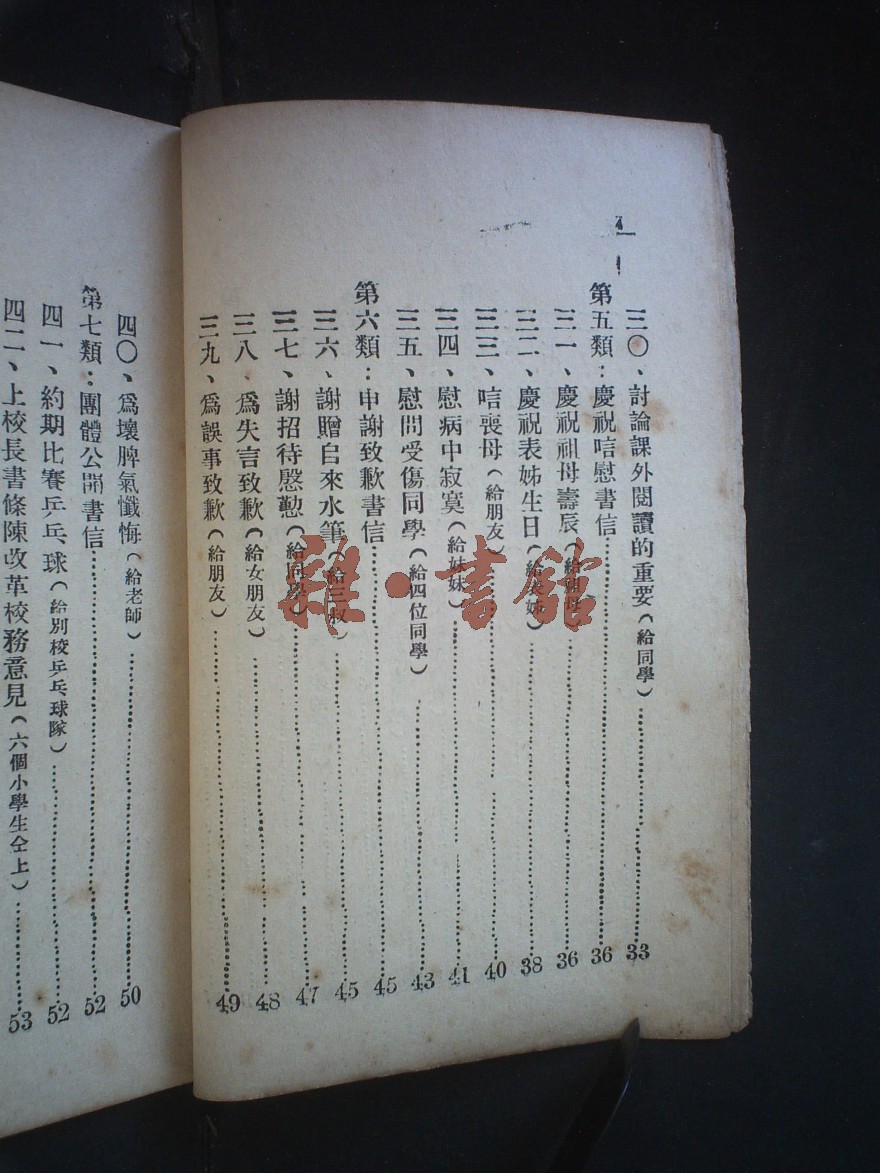 三〇、討論課外閱讀的重要(給同學)……33
第五類：慶祝唁慰書信……36
三一、慶祝祖母壽辰(給祖母)……36
三二、慶祝表姊生日(給表姊)……38
三三、唁喪母(給朋友)……40
三四、慰病中寂寞(給妹妹)……41
三五、慰問受傷同學(給四位同學)……43
第六類：申謝致歉書信……45
三六、謝贈自來水筆(給三叔)……45
三七、謝招待慇懃(給同學)……47
三八、爲失言致歉(給女朋友)……48
三九、爲誤事致歉(給朋友)……49
四〇、爲壞脾氣懺悔(給老師)……50
第七類：團體公開書信……52
四一、約期比賽乒乓球(給別校乒乓球隊)……52
四二、上校長書條陳改革校務意見(六個小學生仝上)……53
雜·書館